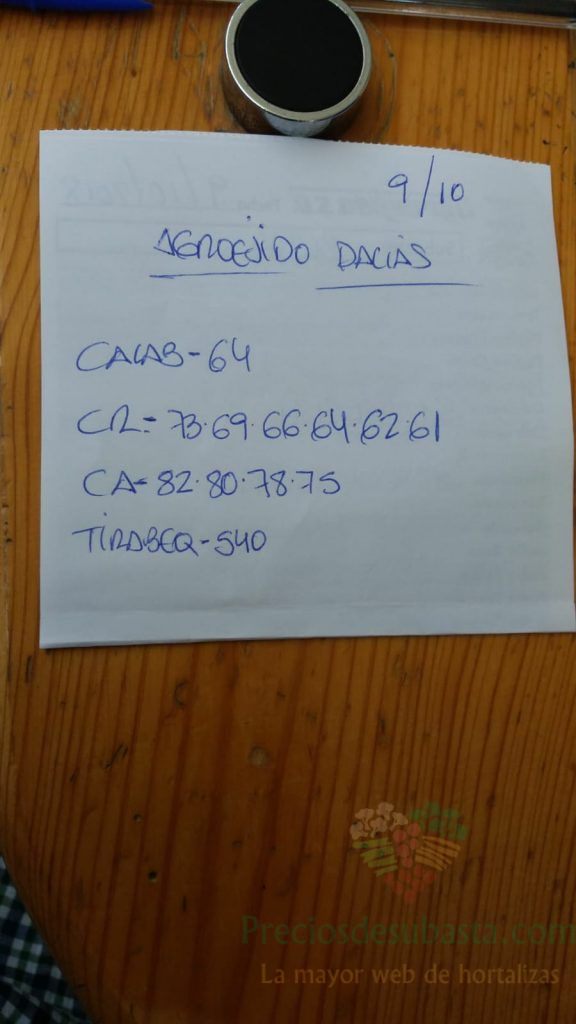 9/10
AGROEJIDO DALIAS
CALAB-64
CR=73.69.66.64.62.61
CA=82.80.78.75
TIRABEQ-540
Preciosdesubasta.com
La mayor web de hortalizas